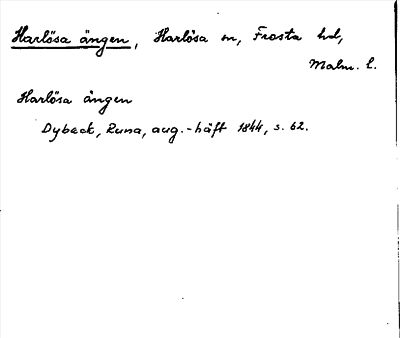 Harlösa ängen, Harlösa sn, Frosta hd,
Malm. l.
Harlösa ängen
Dybeck, Runa, aug.-häft 1844, s. 62.